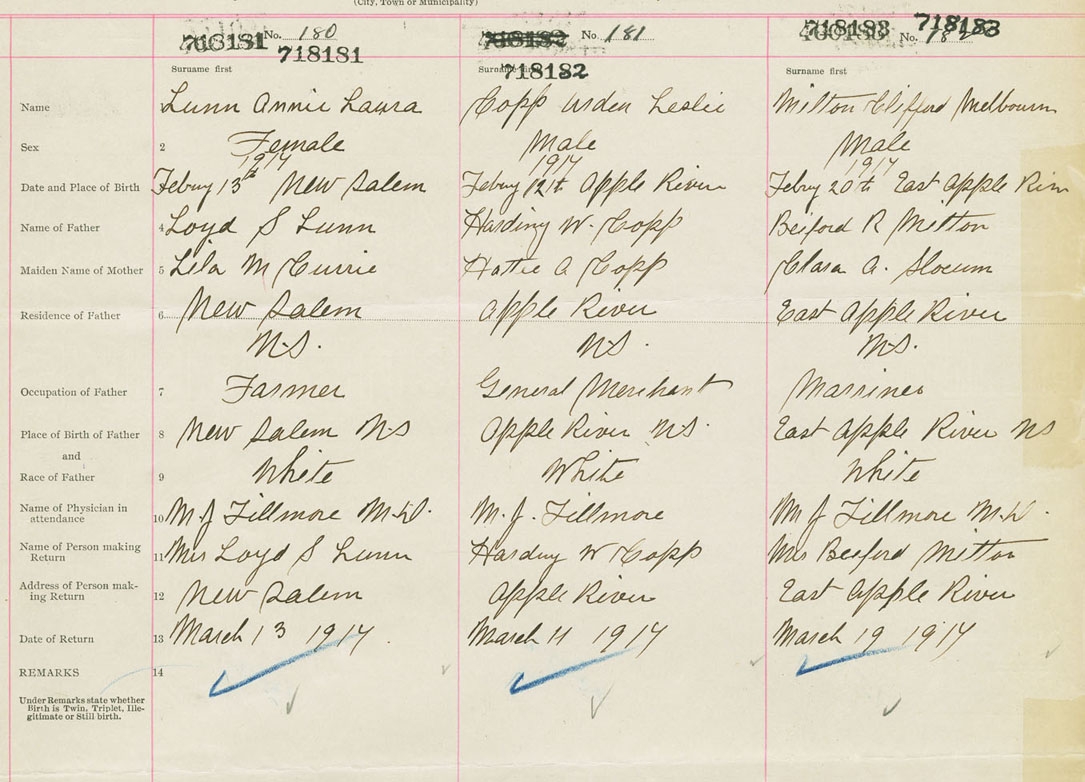 (City, Town or Municipality)
718181 No. 180 718182 No 181 718183 No. 182 718183
718181 718182
Surname first Surname first Surname first
Name Lunn Annie Laura Copp Arden Leslie Mitton Clifford Melbourn
Sex 2 Female Male Male
1917 1917 1917
Date and Place of Birth Febuy 13th New Salem Febuy 12th Apple River Febry 20th East Apple River
Name of Father 4 Loyd S Lunn Harding W. Copp Beiford R Mitton
Maiden Name of Mother 5 Lila McCurrie Hattie A Copp Clara A. Slocum
Residence of Father 6 New Salem Apple River East Apple River
N.S. N.S. N.S.
Occupation of Father 7 Farmer General Merchant Marriner
Place of Birth of Father 8 New Salem N S Apple River N.S. East Apple River N S
and
Race of Father 9 White White White
Name of Physician in
attendance 10 M. J Fillmore M.D. M. J. Fillmore M J Fillmore M.D.
Name of Person making
Return 11 Mrs Loyd S Lunn Harding W Copp Mrs Beeford Mitton
Address of Person mak-
ing Return 12 New Salem Apple River East Apple River
Date of Return 13 March 13 1917 March 11 1917 March 19 1917
REMARKS 14
Under Remarks state whether
Birth is Twin, Triplet, Ille-
gitimate or Still birth.